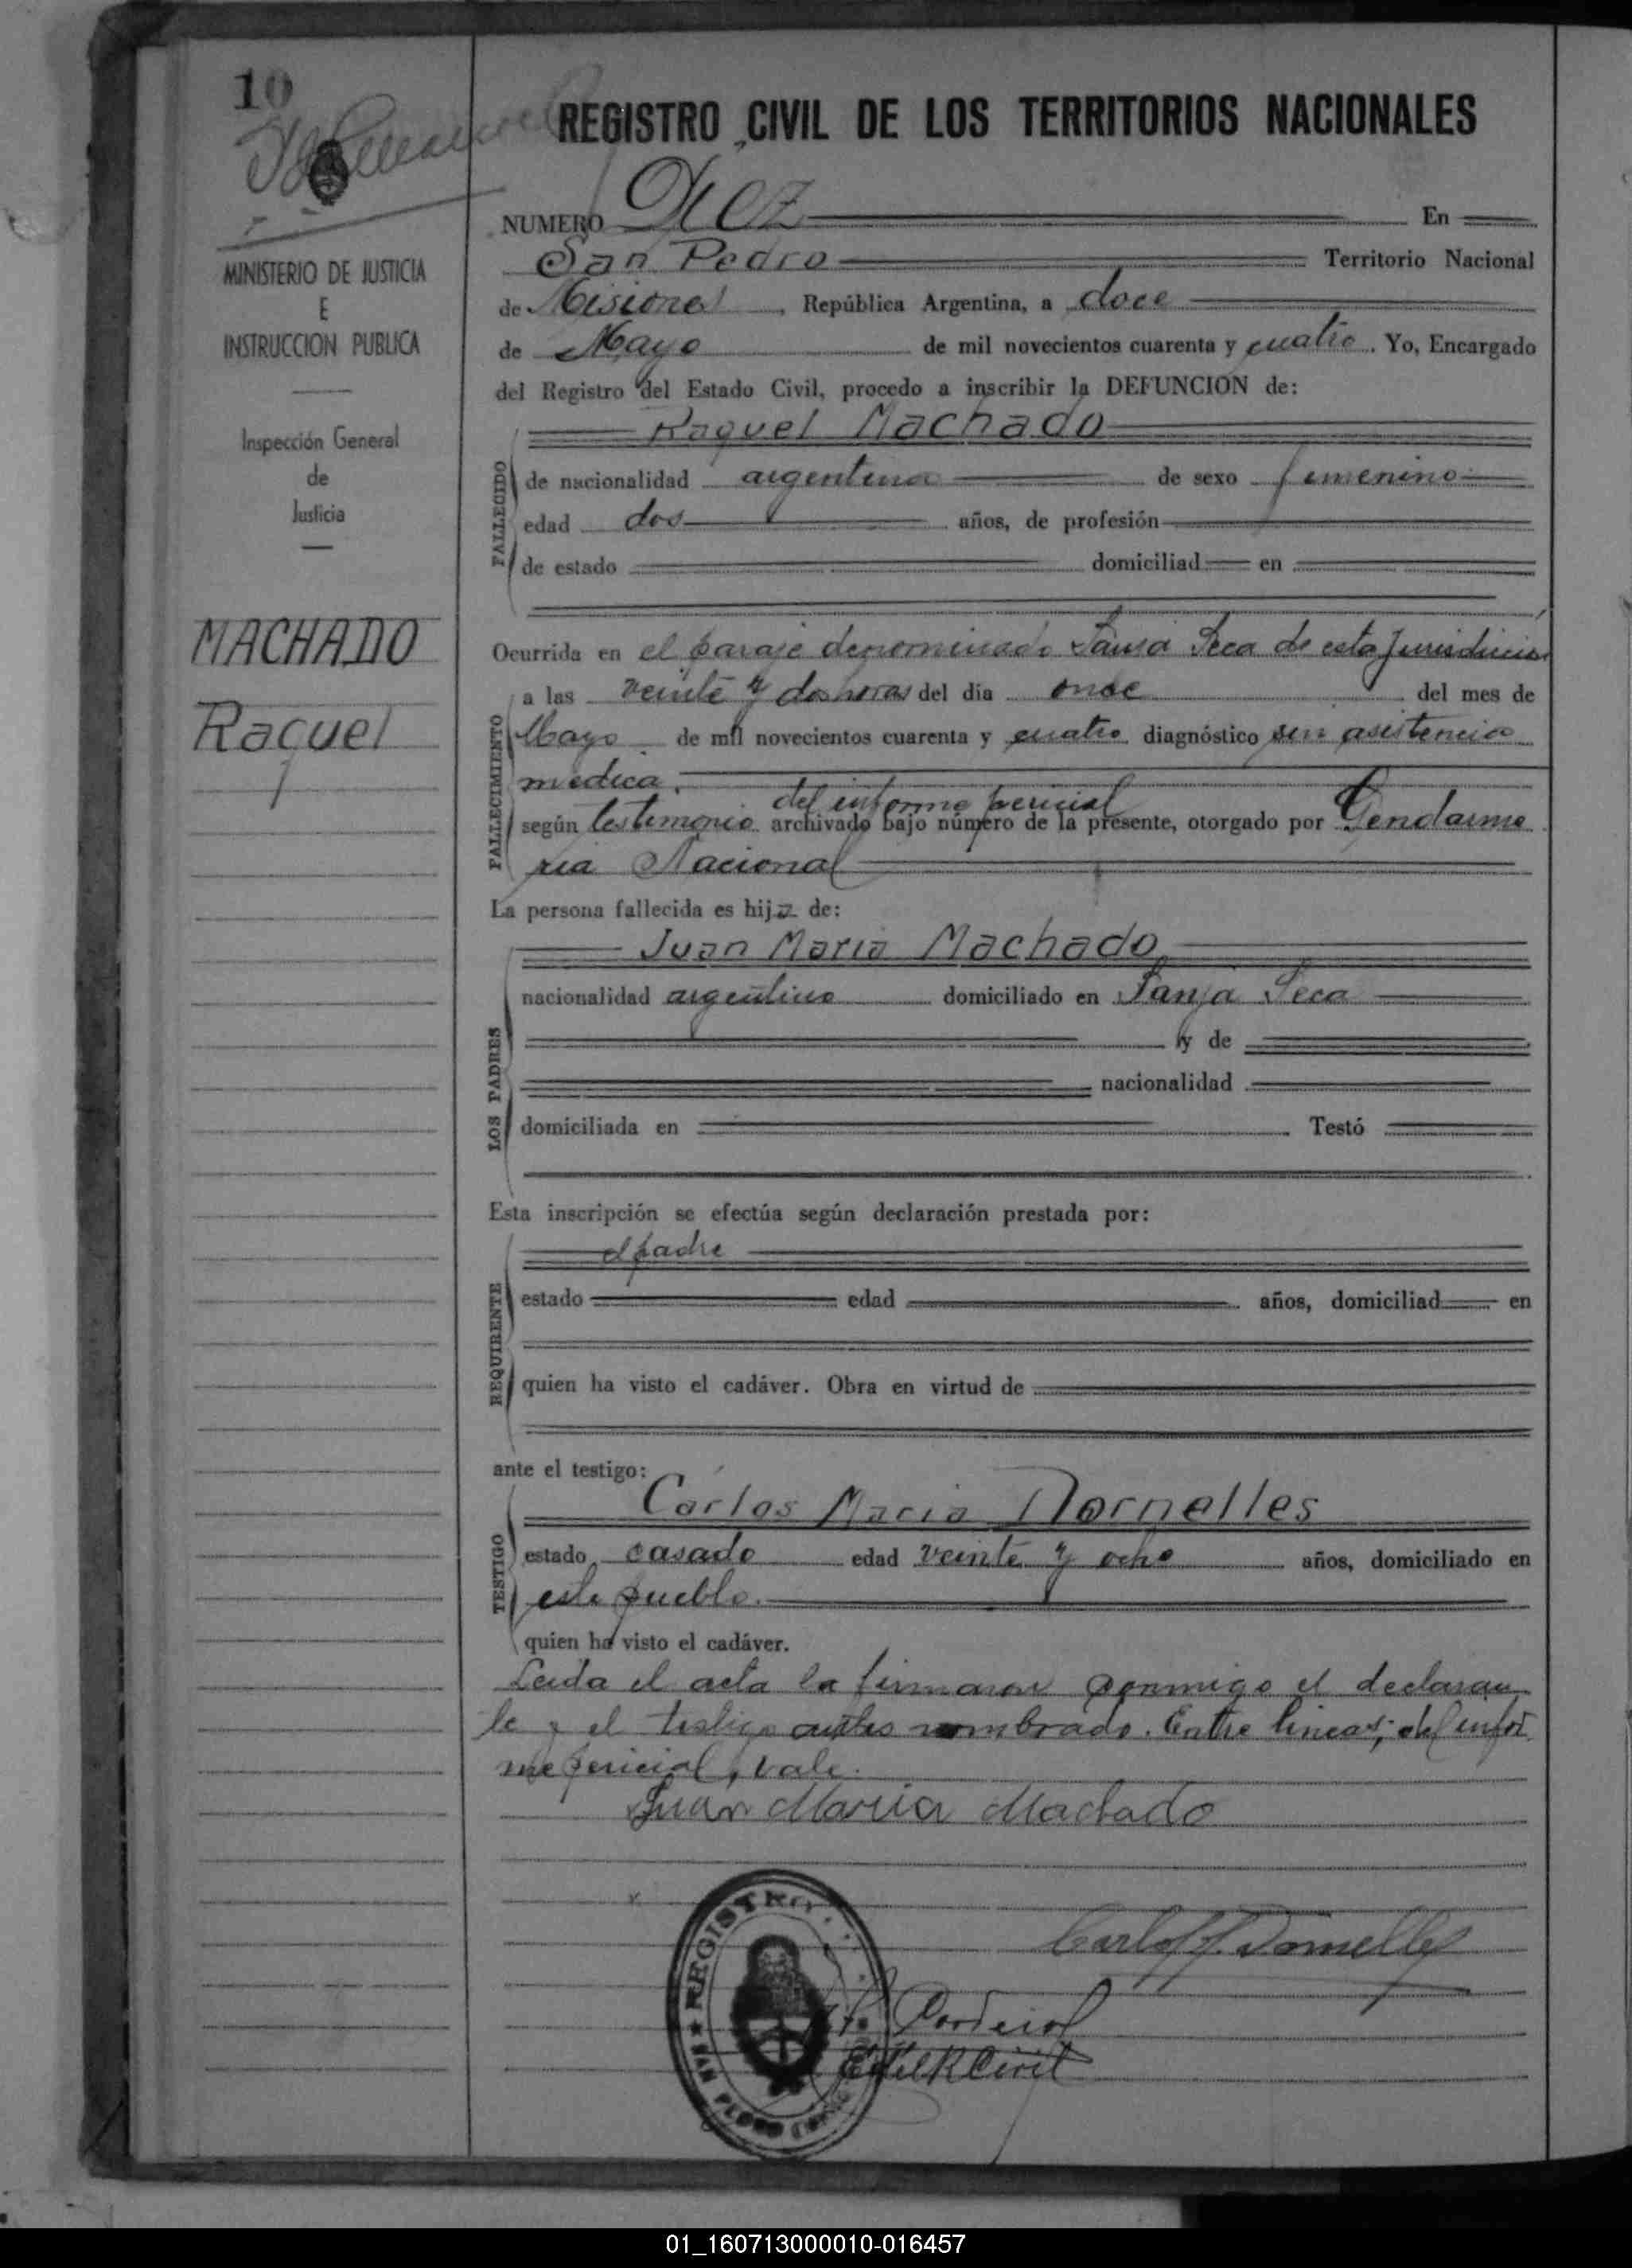 10
REGISTRO CIVIL DE LOS TERRITORIOS NACIONALES
MINISTERIO DE JUSTICIA
E
INSTRUCCION PUBLICA
Inspección General
de
Justicia
MACHADO
Raquel
NUMERO Diez En
San Pedro Territorio Nacional
de Misiones, República Argentina, a doce
de Mayo de mil novecientos cuarenta y cuatro. Yo, Encargado
del Registro del Estado Civil, procedo a inscribir la DEFUNCION de:
Raquel Machado
FALLECIDO
de nacionalidad argentina de sexo femenino
edad dos años, de profesión
de estado domiciliad en
Ocurrida en el paraje denominado Seca de esta Jurisdicción
FALLECIMIENTO
a las veinte y dos horas del día once del mes de
Mayo de mil novecientos cuarenta y cuatro diagnóstico sin asistencia
médica.
del informe pericial
según testimonio archivado bajo número de la presente, otorgado por Gendarme
ria Nacional
La persona fallecida es hija de:
LOS PADRES
Juan Maria Machado
nacionalidad argentino domiciliado en Sanja Seca
y de
nacionalidad
domiciliada en Testó
Esta inscripción se efectúa según declaración prestada por:
REQUIRENTE
el padre
estado edad años, domiciliad en
quien ha visto el cadáver. Obra en virtud de
ante el testigo:
TESTIGO
Carlos Maria Dornelles
estado casado edad veinte y ocho años, domiciliado en
este pueblo.
quien ha visto el cadáver.
Leida el acta la firmaron conmigo el declaran
te y el testigo antes nombrado. Entre lineas; del infor
me pericial, vale.
Juan Maria Machado
Carlos M. Dornelles
REGISTRO
SAN PEDRO
Civil
01_160713000010-016457